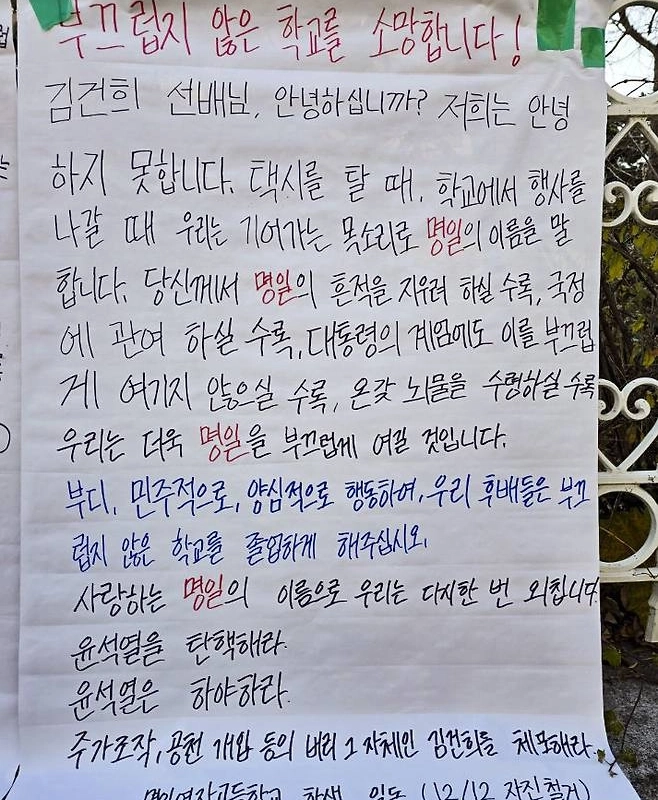 부끄럽지 않은 학교를 소망합니다!
김건희 선배님, 안녕하십니까? 저희는 안녕
하지 못합니다. 택시를 탈 때, 학교에서 행사를
나갈 때 우리는 기어가는 목소리로 명일의 이름을 말
합니다. 당신께서 명일의 흔적을 지우려 하실 수록, 국정
에 관여 하실 수록, 대통령의 계엄에도 이를 부끄럽
게 여기지 않으실 수록, 온갖 뇌물을 수령하실 수록
우리는 더욱 명일을 부끄럽게 여길 것입니다.
부디, 민주적으로, 양심적으로 행동하여, 우리 후배들은 부끄
럽지 않은 학교를 졸업하게 해주십시오.
사랑하는 명일의 이름으로 우리는 다시한 번 외칩니다.
윤석열을 탄핵해라.
윤석열은 하야하라.
주가조작, 공천 개입 등의 비리 그 자체인 김건희를 체포해라.
명일여자고등학교 학생 일동 (12/12 자진철거)